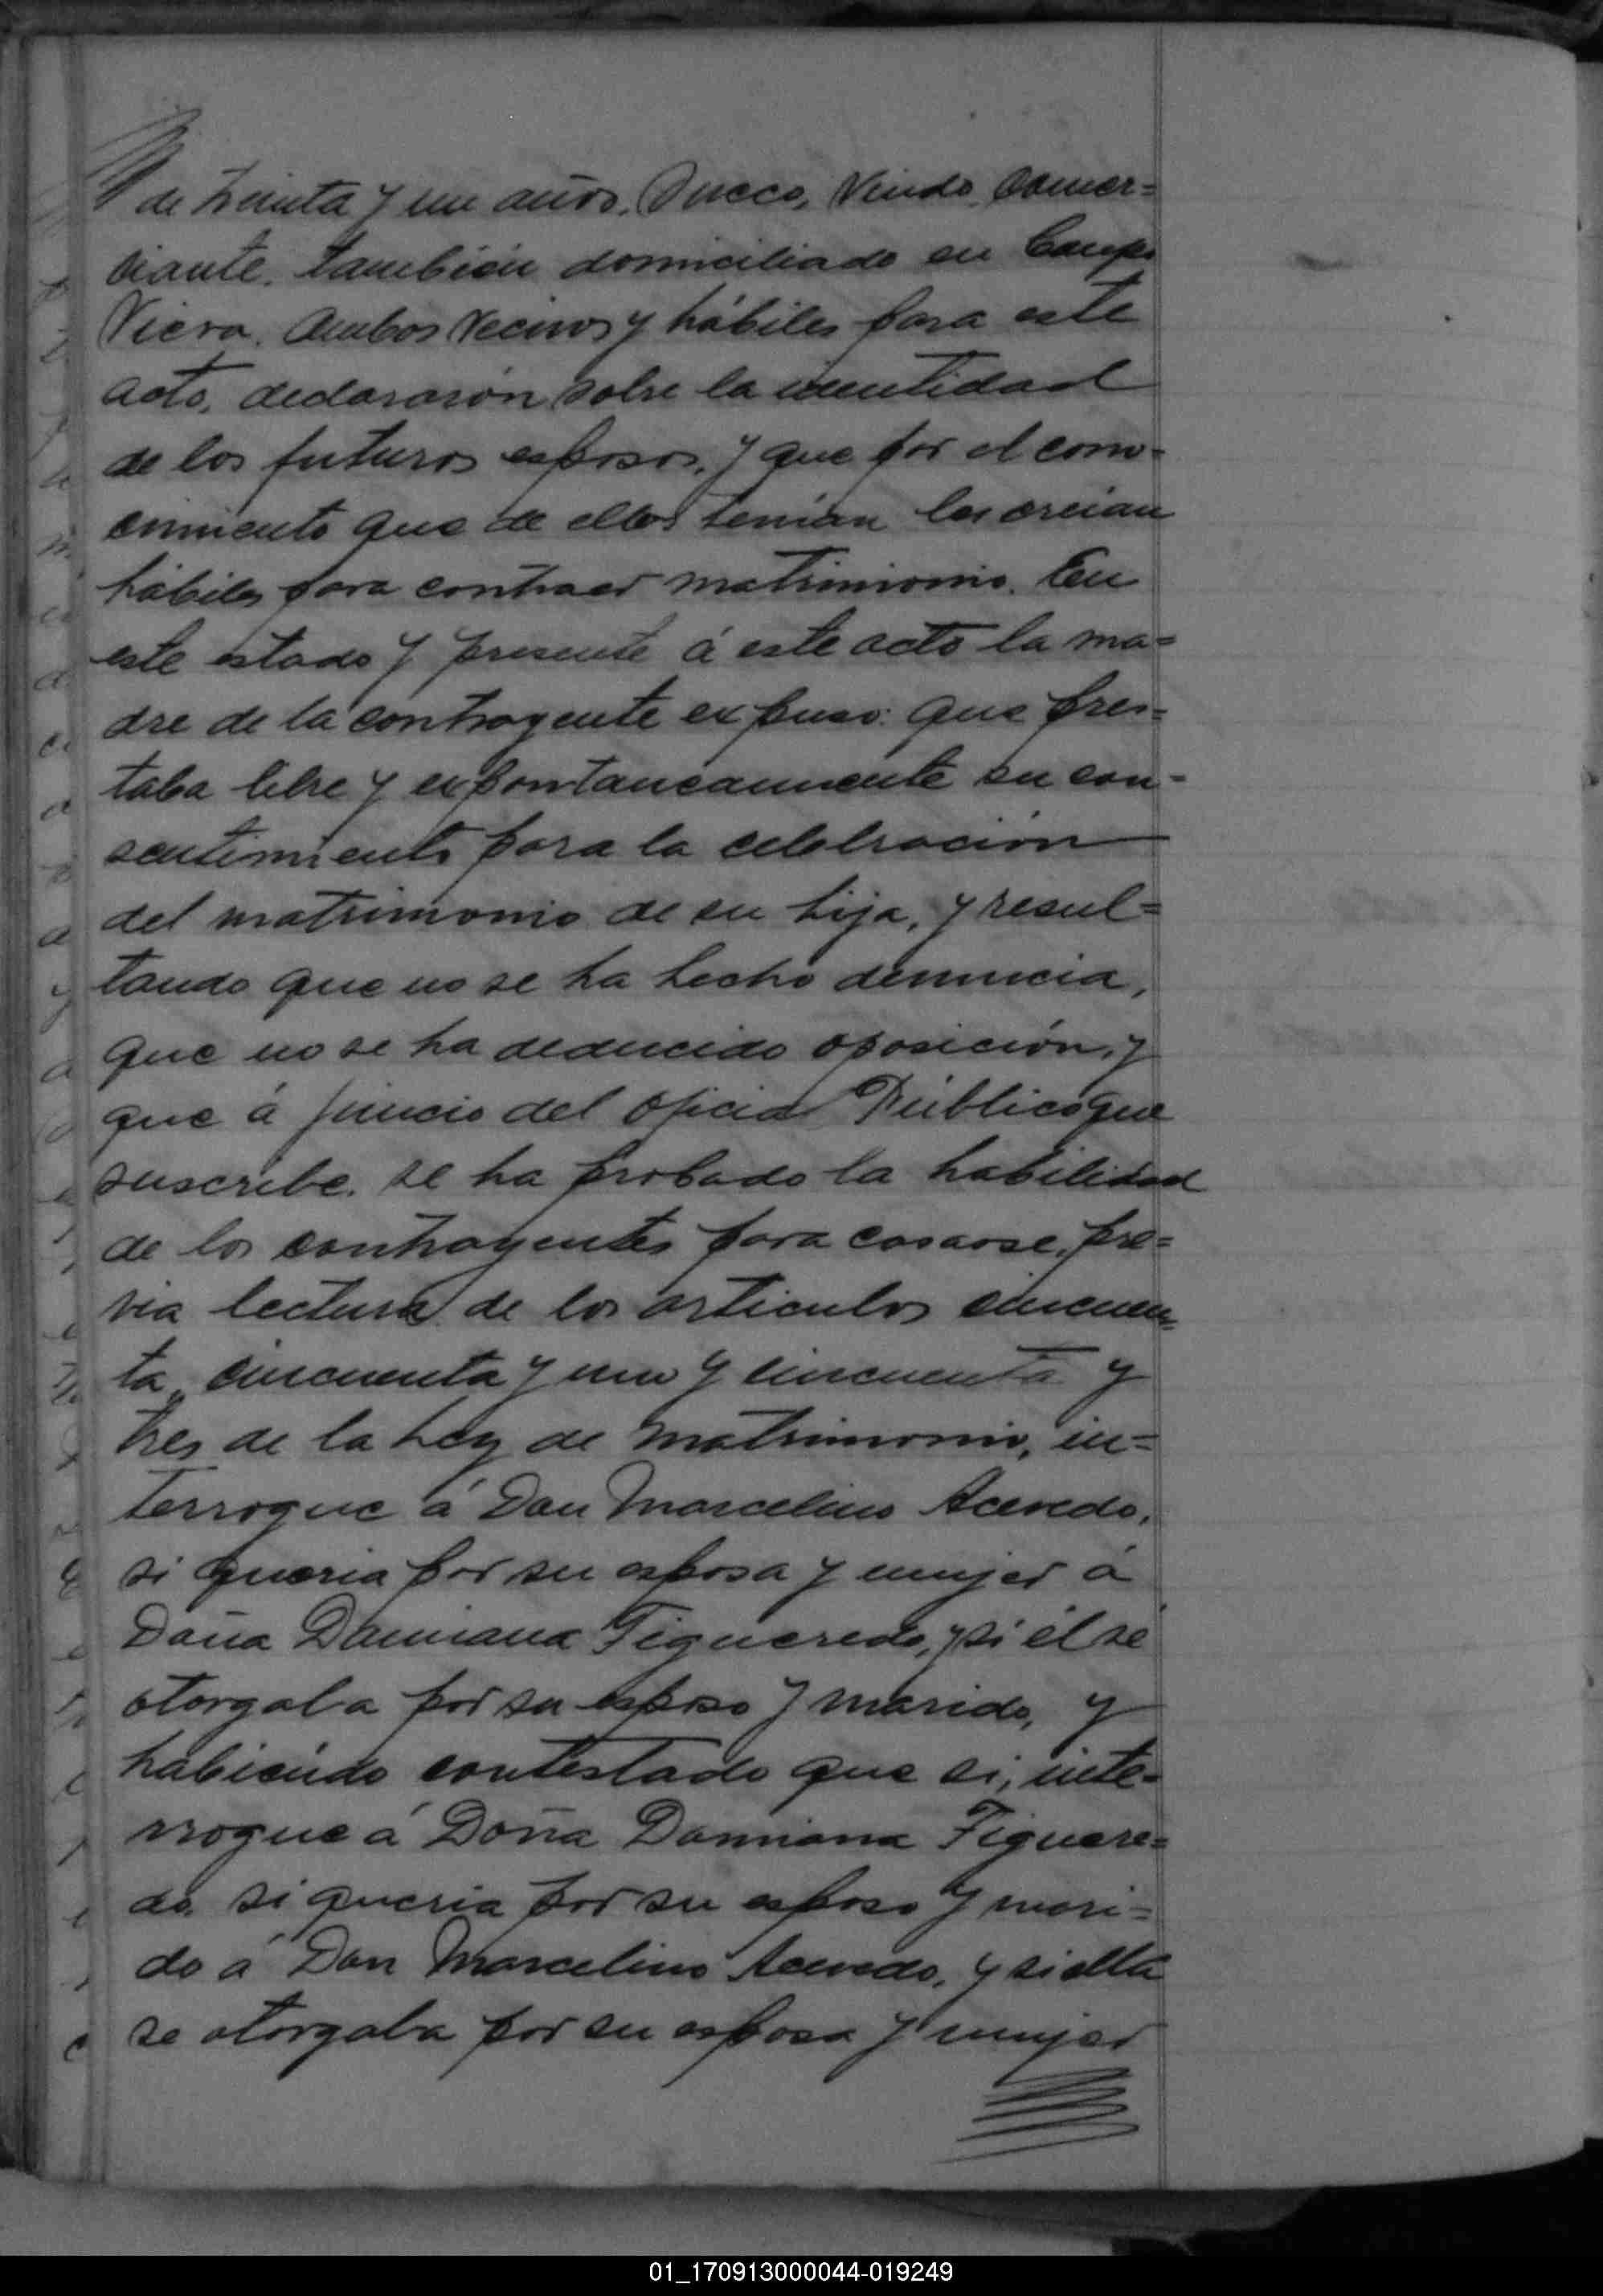 de treinta y un años, Sueco, Viudo, Comer=
ciante, también domiciliado en Campo
Viera. Ambos vecinos y hábiles para este
acto, declararón sobre la identidad
de los futuros esposos, y que por el cono-
cimiento que de ellos tenían los creían
hábiles para contraer matrimonio. En
este estado y presente á este acto la ma=
dre de la contrayente expuso: que pres=
taba libre y expontaneamente su con-
sentimiento para la celebración
del matrimonio de su hija, y resul=
tando que no se ha hecho denuncia,
que no se ha deducido oposición, y
que á juicio del Oficial Público que
suscribe, se ha probado la habilidad
de los contrayentes para casarse, pre=
via lectura de los artículos cincuen-
ta, cincuenta y uno y cincuenta y
tres de la Ley de Matrimonio, in=
terrogue á Don Marcelino Acevedo,
si queria por su esposa y mujer á
Doña Damiana Figueredo, y si él se
otorgaba por su esposo y marido, y
habiendo contestado que si, inte-
rrogue á Doña Damiana Figuere=
do, si queria por su esposo y mari=
do á Don Marcelino Acevedo, y si ella
se otorgaba por su esposa y mujer
01_170913000044-019249